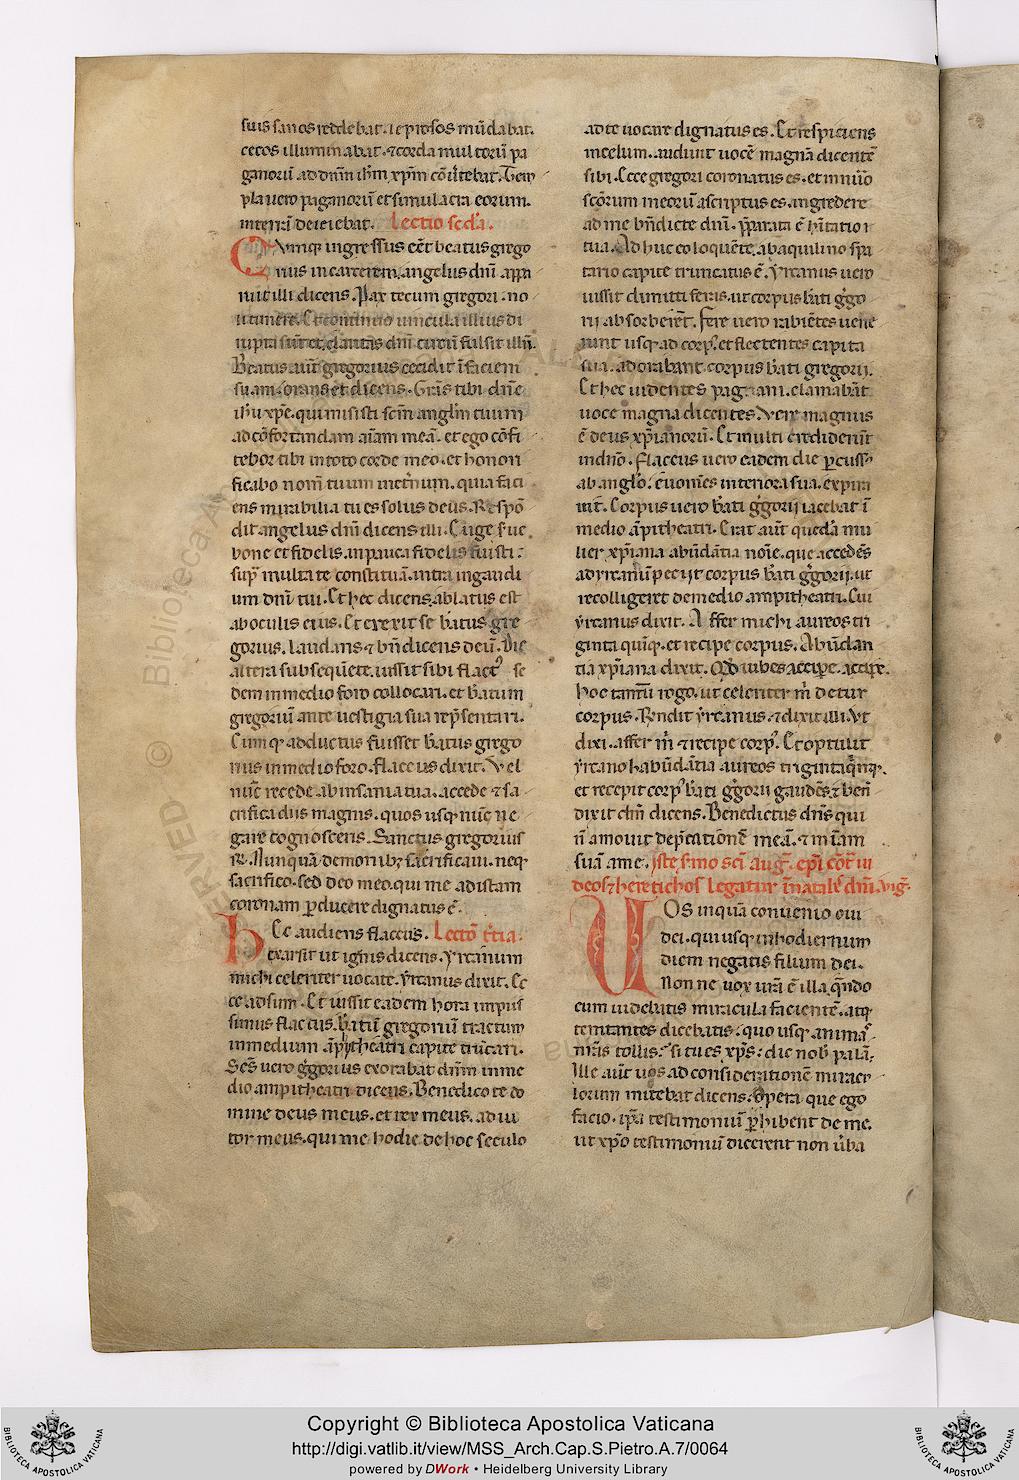 suis sanos reddebat. leprosos mūdabat.
cecos illuminabat. ⁊ corda multorū pa
ganorū ad dn̄m ih̄m xp̄m cōu̓tebat. Tem
pla uero paganorū et simulacra eorum.
in terrā deiciebat. Lectio sc̄da.
Cumq; ingressus eēt beatus grego
rius in carcerem. angelus dn̄i appa
ruit illi dicens. Pax tecum gregori. no
li timere. Et continuo uincula illius di
rupta sunt et claritas dn̄i circū fulsit illū.
Beatus aut̄ gregorius cecidit ī faciem
suam. orans et dicens. Gr̄as tibi dn̄e
ih̄u xp̄e. qui misisti sc̄m angl̄m tuum
ad cōfortandam aīam meā. et ego cōfi
tebor tibi in toto corde meo. et honori
ficabo nom̄ tuum in et̄num. quia faci
ens mirabilia tu es solus deus. Respō
dit angelus dn̄i dicens illi. Euge serue
bone et fidelis. in pauca fidelis fuisti:
sup̄ multa te constituā. intra in gaudi
um dn̄i tui. Et hec dicens. ablatus est
ab oculis eius. Et erexit se b̄atus gre
gorius. laudans ⁊ bn̄dicens deū. Die
altera subsequēte. iussit sibi flacc᷒ se
dem in medio foro collocari. et b̄atum
gregoriū ante uestigia sua rep̄sentari.
Cumq; adductus fuisset b̄atus grego
rius in medio foro. flaccus dixit. Vel
nūc recede ab insania tua. accede ⁊ sa
crifica diis magnis. quos usq; nūc ne
gare cognoscens. Sanctus gregorius
R̄. Nunquā demonib; sacrificaui. neq;
sacrifico. sed deo meo. qui me ad istam
coronam ꝑducere dignatus ē.
Hec audiens flaccus. Lectō t̄cia.
exarsit ut ignis dicens. Yrcanum
michi celeriter uocate. yrcanus dixit. Ec
ce adsum. Et iussit eadem hora impiis
simus flaccus. b̄atū gregoriū tractum
in medium āpitheatri capite trūcari.
Sc̄s uero ḡgorius exorabat dn̄m in me
dio ampitheatri dicens. Benedico te do
mine deus meus. et rex meus. adiu
tor meus. qui me hodie de hoc seculo
ad te uocare dignatus es. Et respiciens
in celum. audiuit uocē magnā dicentē
sibi. Ecce gregori coronatus es. et in nūo
sc̄orum meorū ascriptus es. ingredere
ad me bn̄dicte dn̄i. p̄parata ē h̄itatio
tua. Adhuc eo loquēte. ab aquilino spa
tario capite truncatus ē. Yrcanus uero
iussit dimitti feras. ut corpus b̄ati ḡgo
rij absorberēt. Fere uero rabiētes uene
runt usq; ad corp᷒. et flectentes capita
sua. adorabant corpus b̄ati gregorij.
Et hec uidentes pagani. clamabāt
uoce magna dicentes. Vere magnus
ē deus xp̄ianorū. Et multi crediderūt
in dn̄o. Flaccus uero eadem die ꝑcuss᷒
ab anglo. euomēs interiora sua. expira
uit. Corpus uero b̄ati ḡgorij iacebat ī
medio āpitheatri. Erat aut̄ quedā mu
lier xp̄iana abūdātia noīe. que accedēs
ad yrcanū peciit corpus b̄ati ḡgorij. ut
recolligeret de medio ampitheatri. Cui
yrcanus dixit. Affer michi aureos tri
ginta quinq;. et recipe corpus. Abūdan
tia xp̄iana dixit. Qd̄ iubes accipe. accipe.
hoc tantū rogo. ut celeriter m̄ detur
corpus. Rendit yrcanus. ⁊ dixit illi. Vt
dixi. affer m̄ ⁊ recipe corp᷒. Et optulit
yrcano habūdātia aureos triginta qinq;.
et recepit corp᷒ b̄ati ḡgorij gaudēs. ⁊ ben̄
dixit dn̄m dicens. Benedictus dn̄s qui
n̄ amouit dep̄cationē meā. ⁊ m̄iam
suā a me. Iste s̄mo sc̄i auḡ. ep̄i cōt̄ iu
deos ⁊ hereticos legatur ī natale dn̄i. uiḡ.
VOS inquā conuenio o iu
dei. qui usq; in hodiernum
diem negatis filium dei.
Non ne uox ur̄a ē illa. qn̄do
eum uidebatis miracula facientē. atq;
temtantes dicebatis: quo usq; animas
nr̄as tollis: si tu es xp̄s: dic nob̄ palā:
Ille aut̄ uos ad considerationē mirac
lorum mitebat dicens. Opera que ego
facio. ip̄a testimoniū ꝑhibent de me.
ut xp̄o testimoniū dicerent non u̓ba
Copyright © Biblioteca Apostolica Vaticana
http://digi.vatlib.it/view/MSS_Arch.Cap.S.Pietro.A.7/0064
powered by DWork • Heidelberg University Library